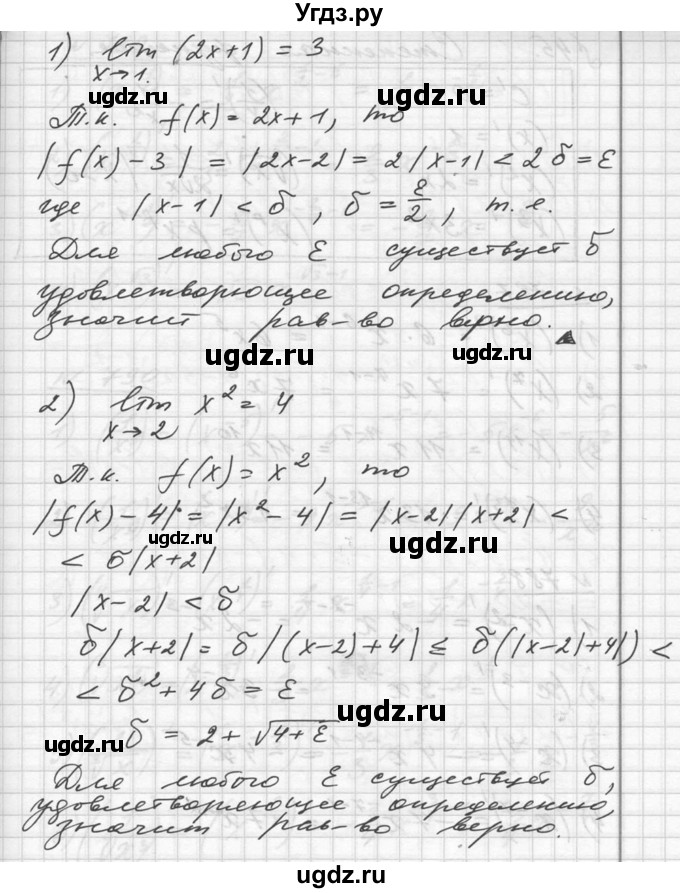 Угдз.ру
1) lim (2x+1) = 3
x→1.
ugdz.ru
ugdz.ru
Т.к. f(x) = 2x+1, то
|f(x) - 3| = |2x-2| = 2|x-1| < 2δ = ε
где |x-1| < δ, δ = ε/2, т.е.
ugdz.ru
ugdz.ru
Для любого ε существует δ
удовлетворяющее определению,
значит рав-во верно.
ugdz.ru
ugdz.ru
2) lim x² = 4
x→2
Т.к. f(x) = x², то
|f(x) - 4| = |x² - 4| = |x-2||x+2| <
ugdz.ru
ugdz.ru
< δ|x+2|
|x-2| < δ
δ|x+2| = δ|(x-2)+4| ≤ δ(|x-2|+4|) <
< δ² + 4δ = ε
ugdz.ru
ugdz.ru
δ = 2 + √4+ε
Для любого ε существует δ,
удовлетворяющее определению,
значит рав-во верно.
ugdz.ru
ugdz.ru
©Угдз.ру